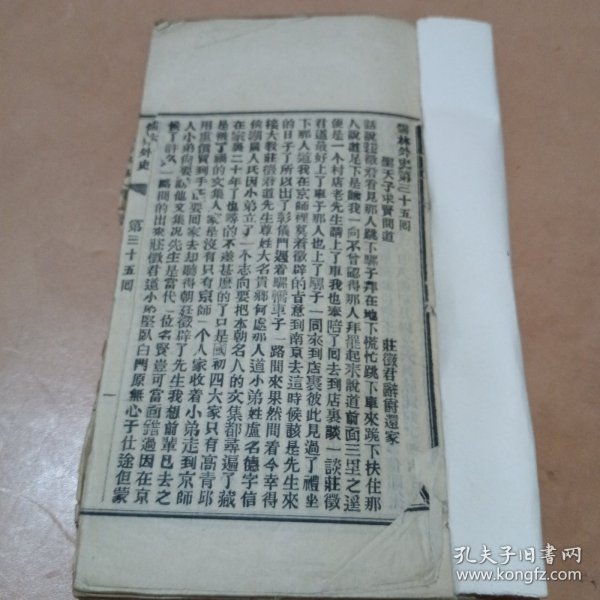 儒林外史第三十五回
聖天子求賢問道
莊徵君辭爵還家
話說莊徵君看見那人跳下騾子拜在地下慌忙跳下車來跪下扶住那
人說道足下是誰我一向不曾認得那人拜罷起來說道前面三里之遙
便是一個村店老先生請上了車我也奉陪了回去到店裏談一談莊徵
君道最好上了車子那人也上了騾子一同來到店裏彼此見過了禮坐
下那人道我在京師裡算着徵辟的旨意到南京去這時候該是先生來
的日子了所以出了彰儀門遇着騾轎車子一路問來果然問着今幸得
接大教莊徵君道先生尊姓大名貴鄉何處那人道小弟姓盧名德字信
侯湖廣人氏因小弟立了一个志向要把本朝名人的文集都尋遍了藏
在家裏二十年了也尋的不差甚麼的了只是國初四大家只有高青邱
是被了禍的文集人家是沒有只有京師一个人家收着小弟走到京師
用重價買到手正要回家去却聽得朝廷徵辟了先生我想前輩已去之
人小弟尚要訪他文集况先生是當代一位名賢豈可當面錯過因在京
候了許久一路問的出來莊徵君道小弟堅臥白門原無心于仕途但蒙
外史
第三十五回
一
孔夫子旧书网
www.kongfz.com